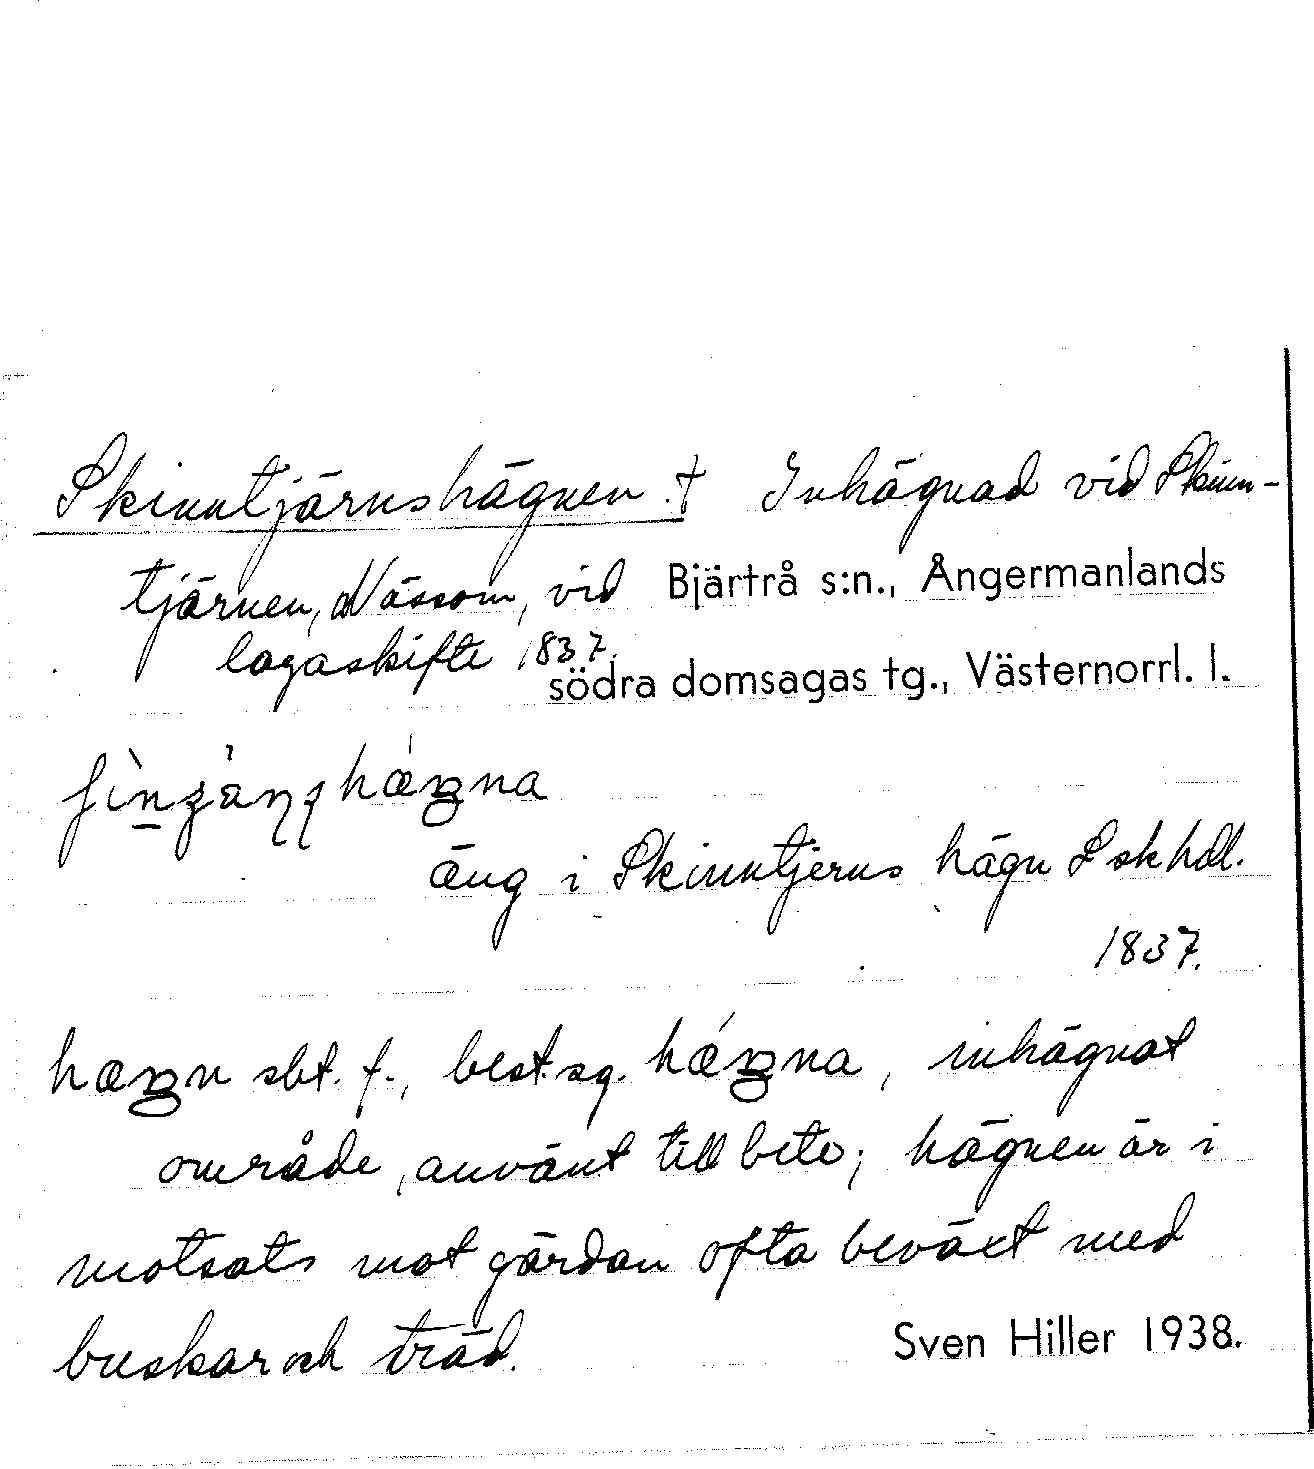 Skinntjärnshägnen † Inhägnad vid Skinn-
tjärnen, Nässom, vid Bjärtrå s:n., Ångermanlands
lagaskifte 1837.
södra domsagas tg., Västernorrl. l.
äng i Skinntjerns hägn Lskhdl.
1837.
sbt. f., best. sg. inhägnat
område, använt till bete; hägnen är i
motsats mot gärdan ofta beväxt med
buskar och träd. Sven Hiller 1938.